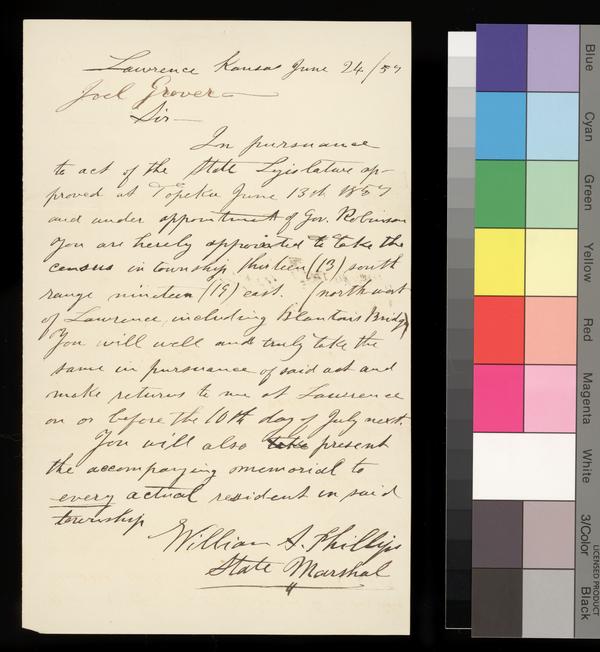 Lawrence Kansas June 24/57
Joel Grover
Sir
In pursuance
to act of the State Legislature ap-
proved at Topeka June 13th 1857
and under appointment of Gov. Robinson
You are hereby appointed to take the
census in township thirteen (13) south
range nineteen (19) east. (northwest
of Lawrence including Blantons Bridge)
You will well and truly take the
same in pursuance of said act and
make returns to me at Lawrence
on or before the 10th day of July next.
You will also take present
the accompanying memorial to
every actual resident in said
township
William A. Phillips
State Marshal
Blue
Cyan
Green
Yellow
Red
Magenta
White
3/Color
Black
LICENSED PRODUCT